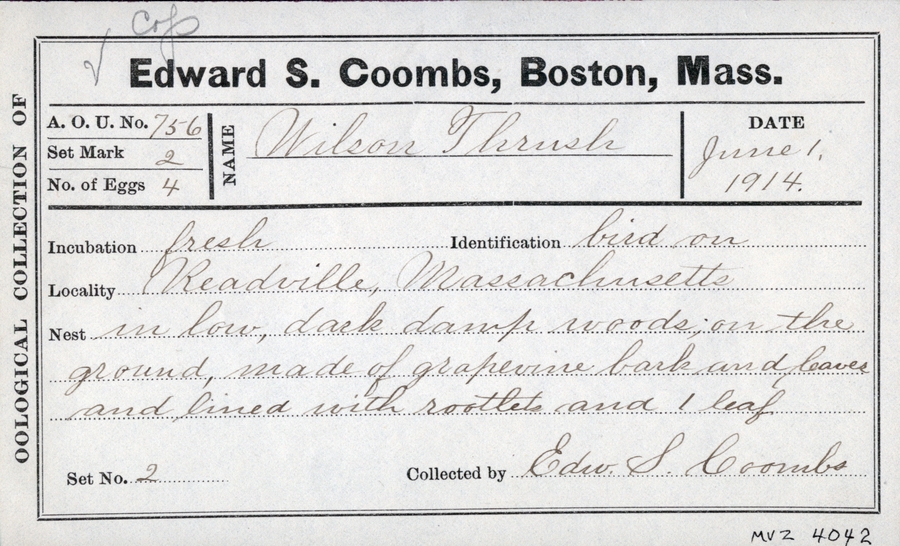 cop
OOLOGICAL COLLECTION OF
Edward S. Coombs, Boston, Mass.
A. O. U. No. 756
Set Mark 2
No. of Eggs 4
NAME Wilson Thrush
DATE
June 1,
1914.
Incubation fresh Identification bird on
Locality Readville, Massachusetts
Nest in low, dark damp woods; on the
ground, made of grapevine bark and leaves
and lined with rootlets and 1 leaf
Set No. 2 Collected by Edw. S. Coombs
MVZ 4042